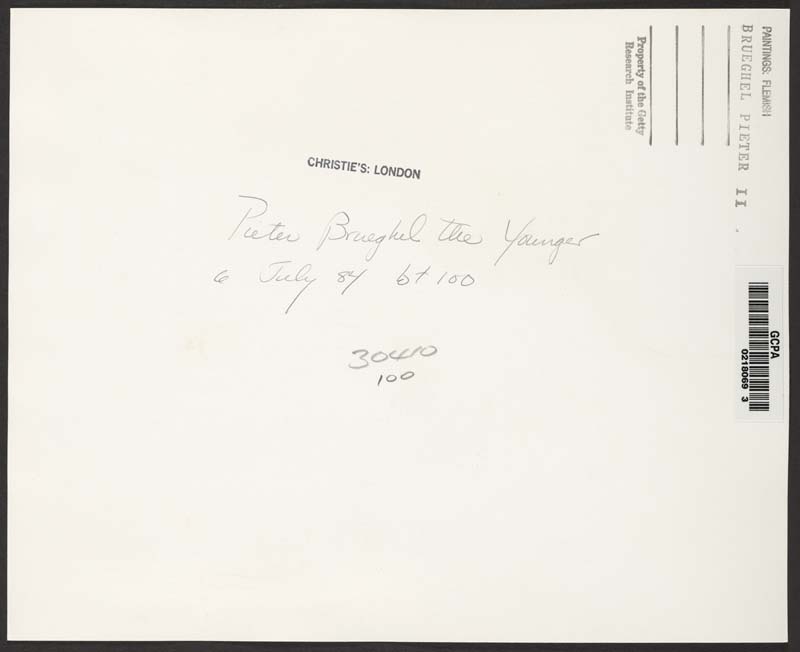 PAINTINGS: FLEMISH
BRUEGHEL PIETER II
Property of the Getty
Research Institute
CHRISTIE'S: LONDON
Pieter Brueghel the Younger
6 July 84 lot 100
30410
100
GCPA
0218069 3